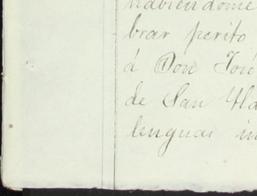 habiendome
brar perito
á Don José
de San
lenguas in